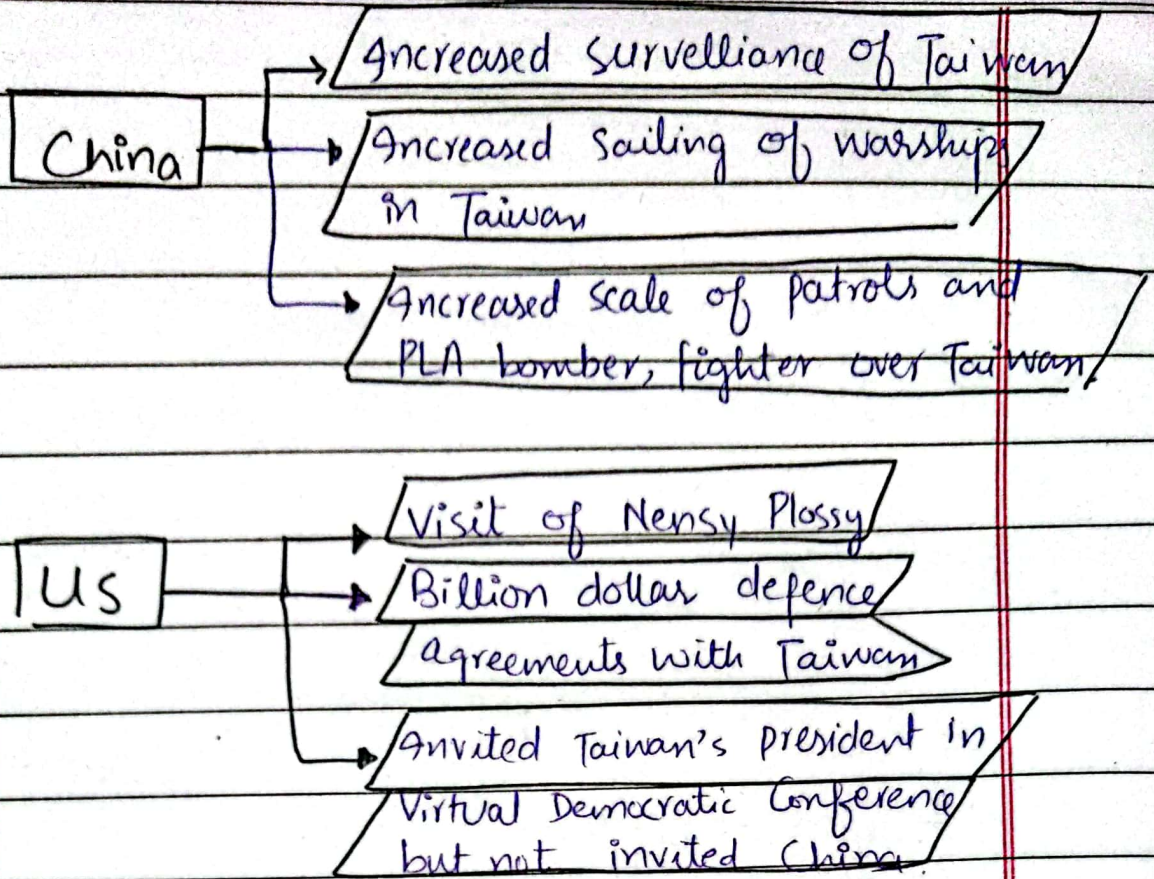 Increased survelliance of Taiwan
China
Increased Sailing of warships
in Taiwan
Increased scale of patrols and
PLA bomber, fighter over Taiwan.
Visit of Nensy Plossy
US
Billion dollar defence
agreements with Taiwan
Invited Taiwan's president in
Virtual Democratic Conference
but not invited China.